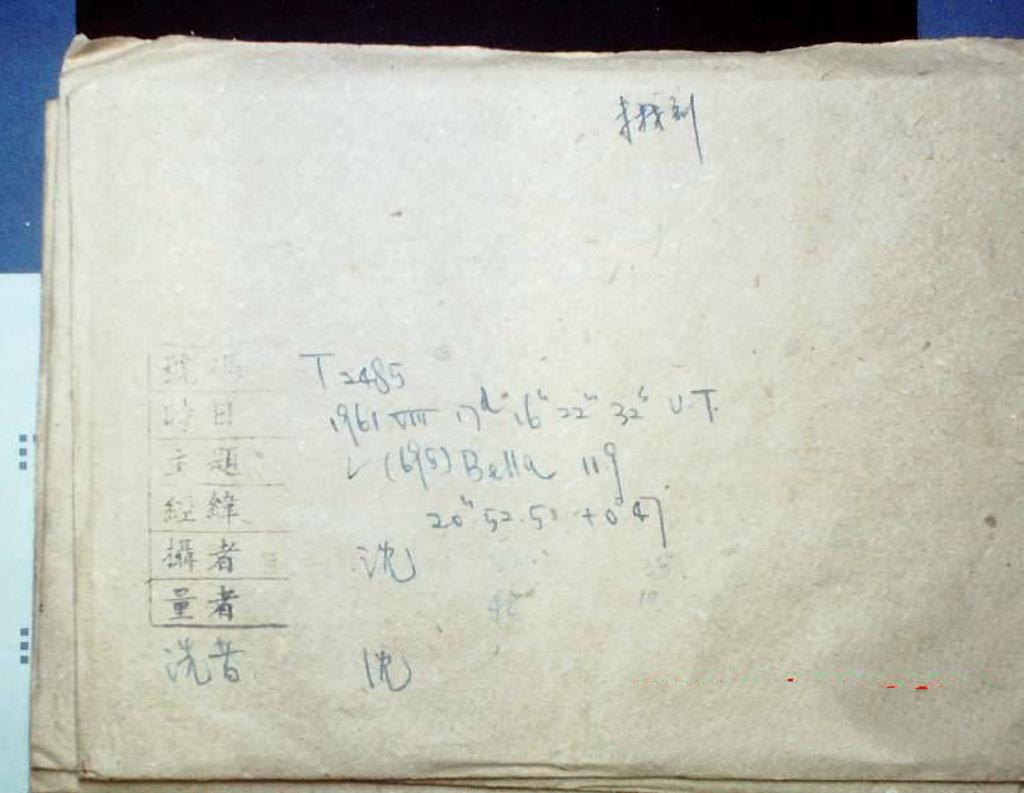 號碼 T2485
時日 1961 VIII 17d 16h 22m 32s U.T.
主題 ✓ (695) Bella 11.9
經緯 20h 52.51 +0°47
攝者 沈
量者
洗者 沈